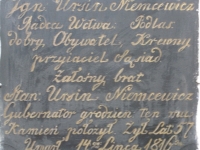 Jan Ursin Niemcewicz
Radca Wdwa: Podlas:
dobry, Obywatel, Krewny
przyiaciel Sąsiad
żałosny brat
Stan: Ursin Niemcewicz
Gubernator grodzień ten mu
Kamień położył Żył Lat 57
Umarł 14go Lipca 1816